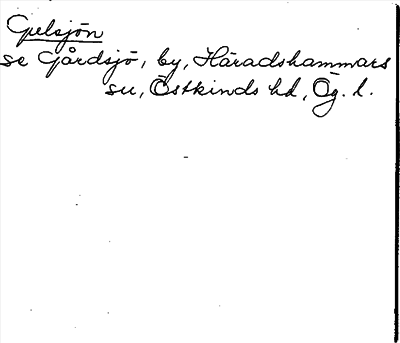 Gelsjön
se Gårdsjö, by, Häradshammars
sn, Östkinds hd, Ög. l.